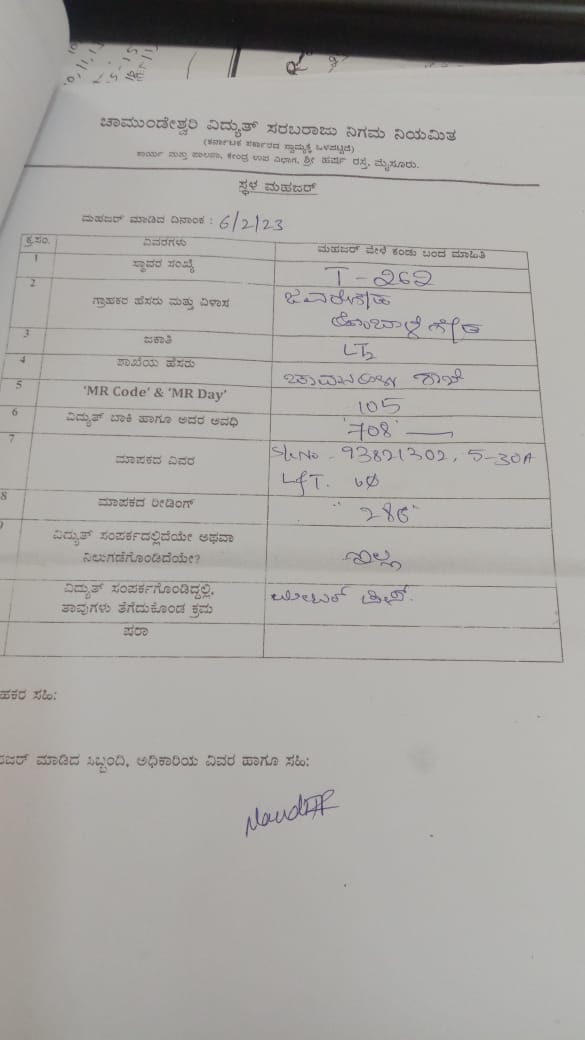 ಚಾಮುಂಡೇಶ್ವರಿ ವಿದ್ಯುತ್ ಸರಬರಾಜು ನಿಗಮ ನಿಯಮಿತ
(ಕರ್ನಾಟಕ ಸರ್ಕಾರದ ಸ್ವಾಮ್ಯಕ್ಕೆ ಒಳಪಟ್ಟಿದೆ)
ಕಾರ್ಯ ಮತ್ತು ಪಾಲನಾ, ಕೇಂದ್ರ ಉಪ ವಿಭಾಗ, ಶ್ರೀ ಹರ್ಷ ರಸ್ತೆ, ಮೈಸೂರು.
ಸ್ಥಳ ಮಹಜರ್
ಮಹಜರ್ ಮಾಡಿದ ದಿನಾಂಕ : 6/2/23
ಕ್ರ.ಸಂ. ವಿವರಗಳು ಮಹಜರ್ ವೇಳೆ ಕಂಡು ಬಂದ ಮಾಹಿತಿ
1 ಸ್ಥಾವರ ಸಂಖ್ಯೆ T-262
2 ಗ್ರಾಹಕರ ಹೆಸರು ಮತ್ತು ವಿಳಾಸ
3 ಜಕಾತಿ LT2
4 ಶಾಖೆಯ ಹೆಸರು ಶಾಖೆ
5 'MR Code' & 'MR Day' 105
6 ವಿದ್ಯುತ್ ಬಾಕಿ ಹಾಗೂ ಅದರ ಅವಧಿ "708"
7 ಮಾಪಕದ ವಿವರ Sl.No - 93821302, 5-30A
L&T.
8 ಮಾಪಕದ ರೀಡಿಂಗ್ "286"
ವಿದ್ಯುತ್ ಸಂಪರ್ಕದಲ್ಲಿದೆಯೇ ಅಥವಾ
ನಿಲುಗಡೆಗೊಂಡಿದೆಯೇ? ಇಲ್ಲ
ವಿದ್ಯುತ್ ಸಂಪರ್ಕಗೊಂಡಿದ್ದಲ್ಲಿ,
ತಾವುಗಳು ತೆಗೆದುಕೊಂಡ ಕ್ರಮ
ಷರಾ
ಹಕರ ಸಹಿ:
ಜರ್ ಮಾಡಿದ ಸಿಬ್ಬಂದಿ, ಅಧಿಕಾರಿಯ ವಿವರ ಹಾಗೂ ಸಹಿ: